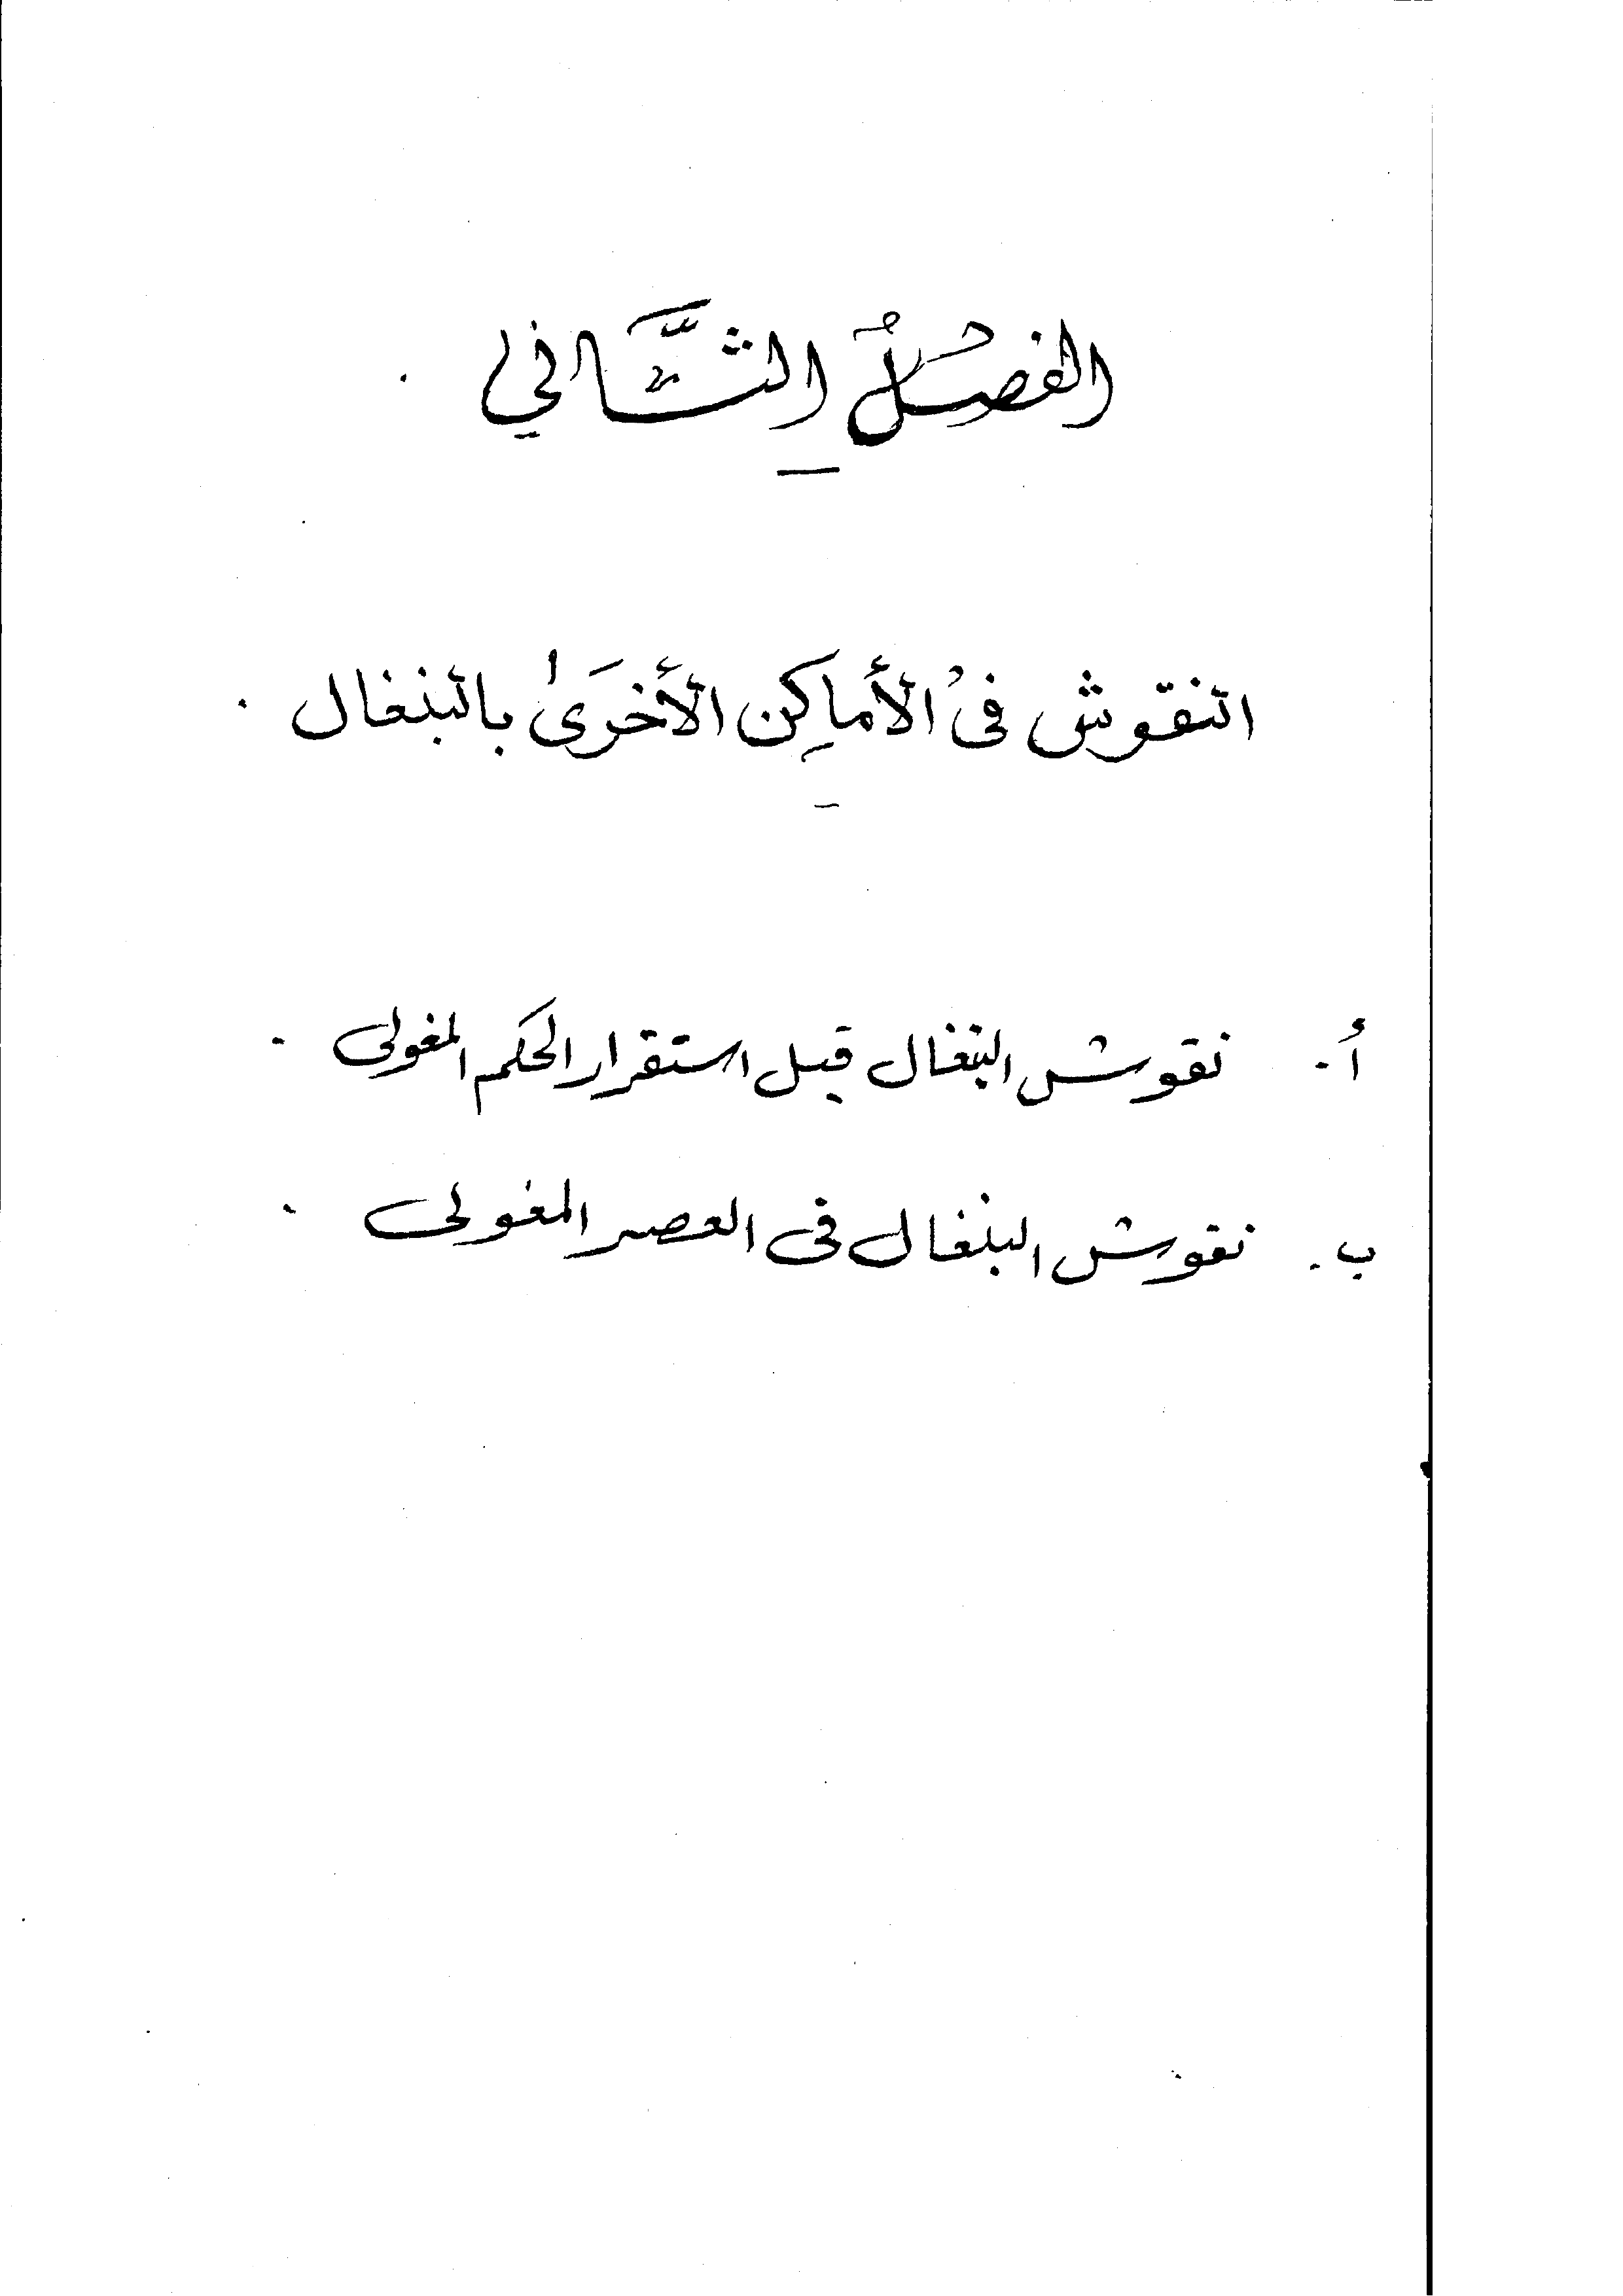 الفَصْلُ الثَّاني .
النقوش فىْ الأماكِن الأخرَىٰ بالبنغال .
أ . نقوش البنغال قبل استقرار الحكم المغولى .
ب . نقوش البنغال فى العصر المغولى .